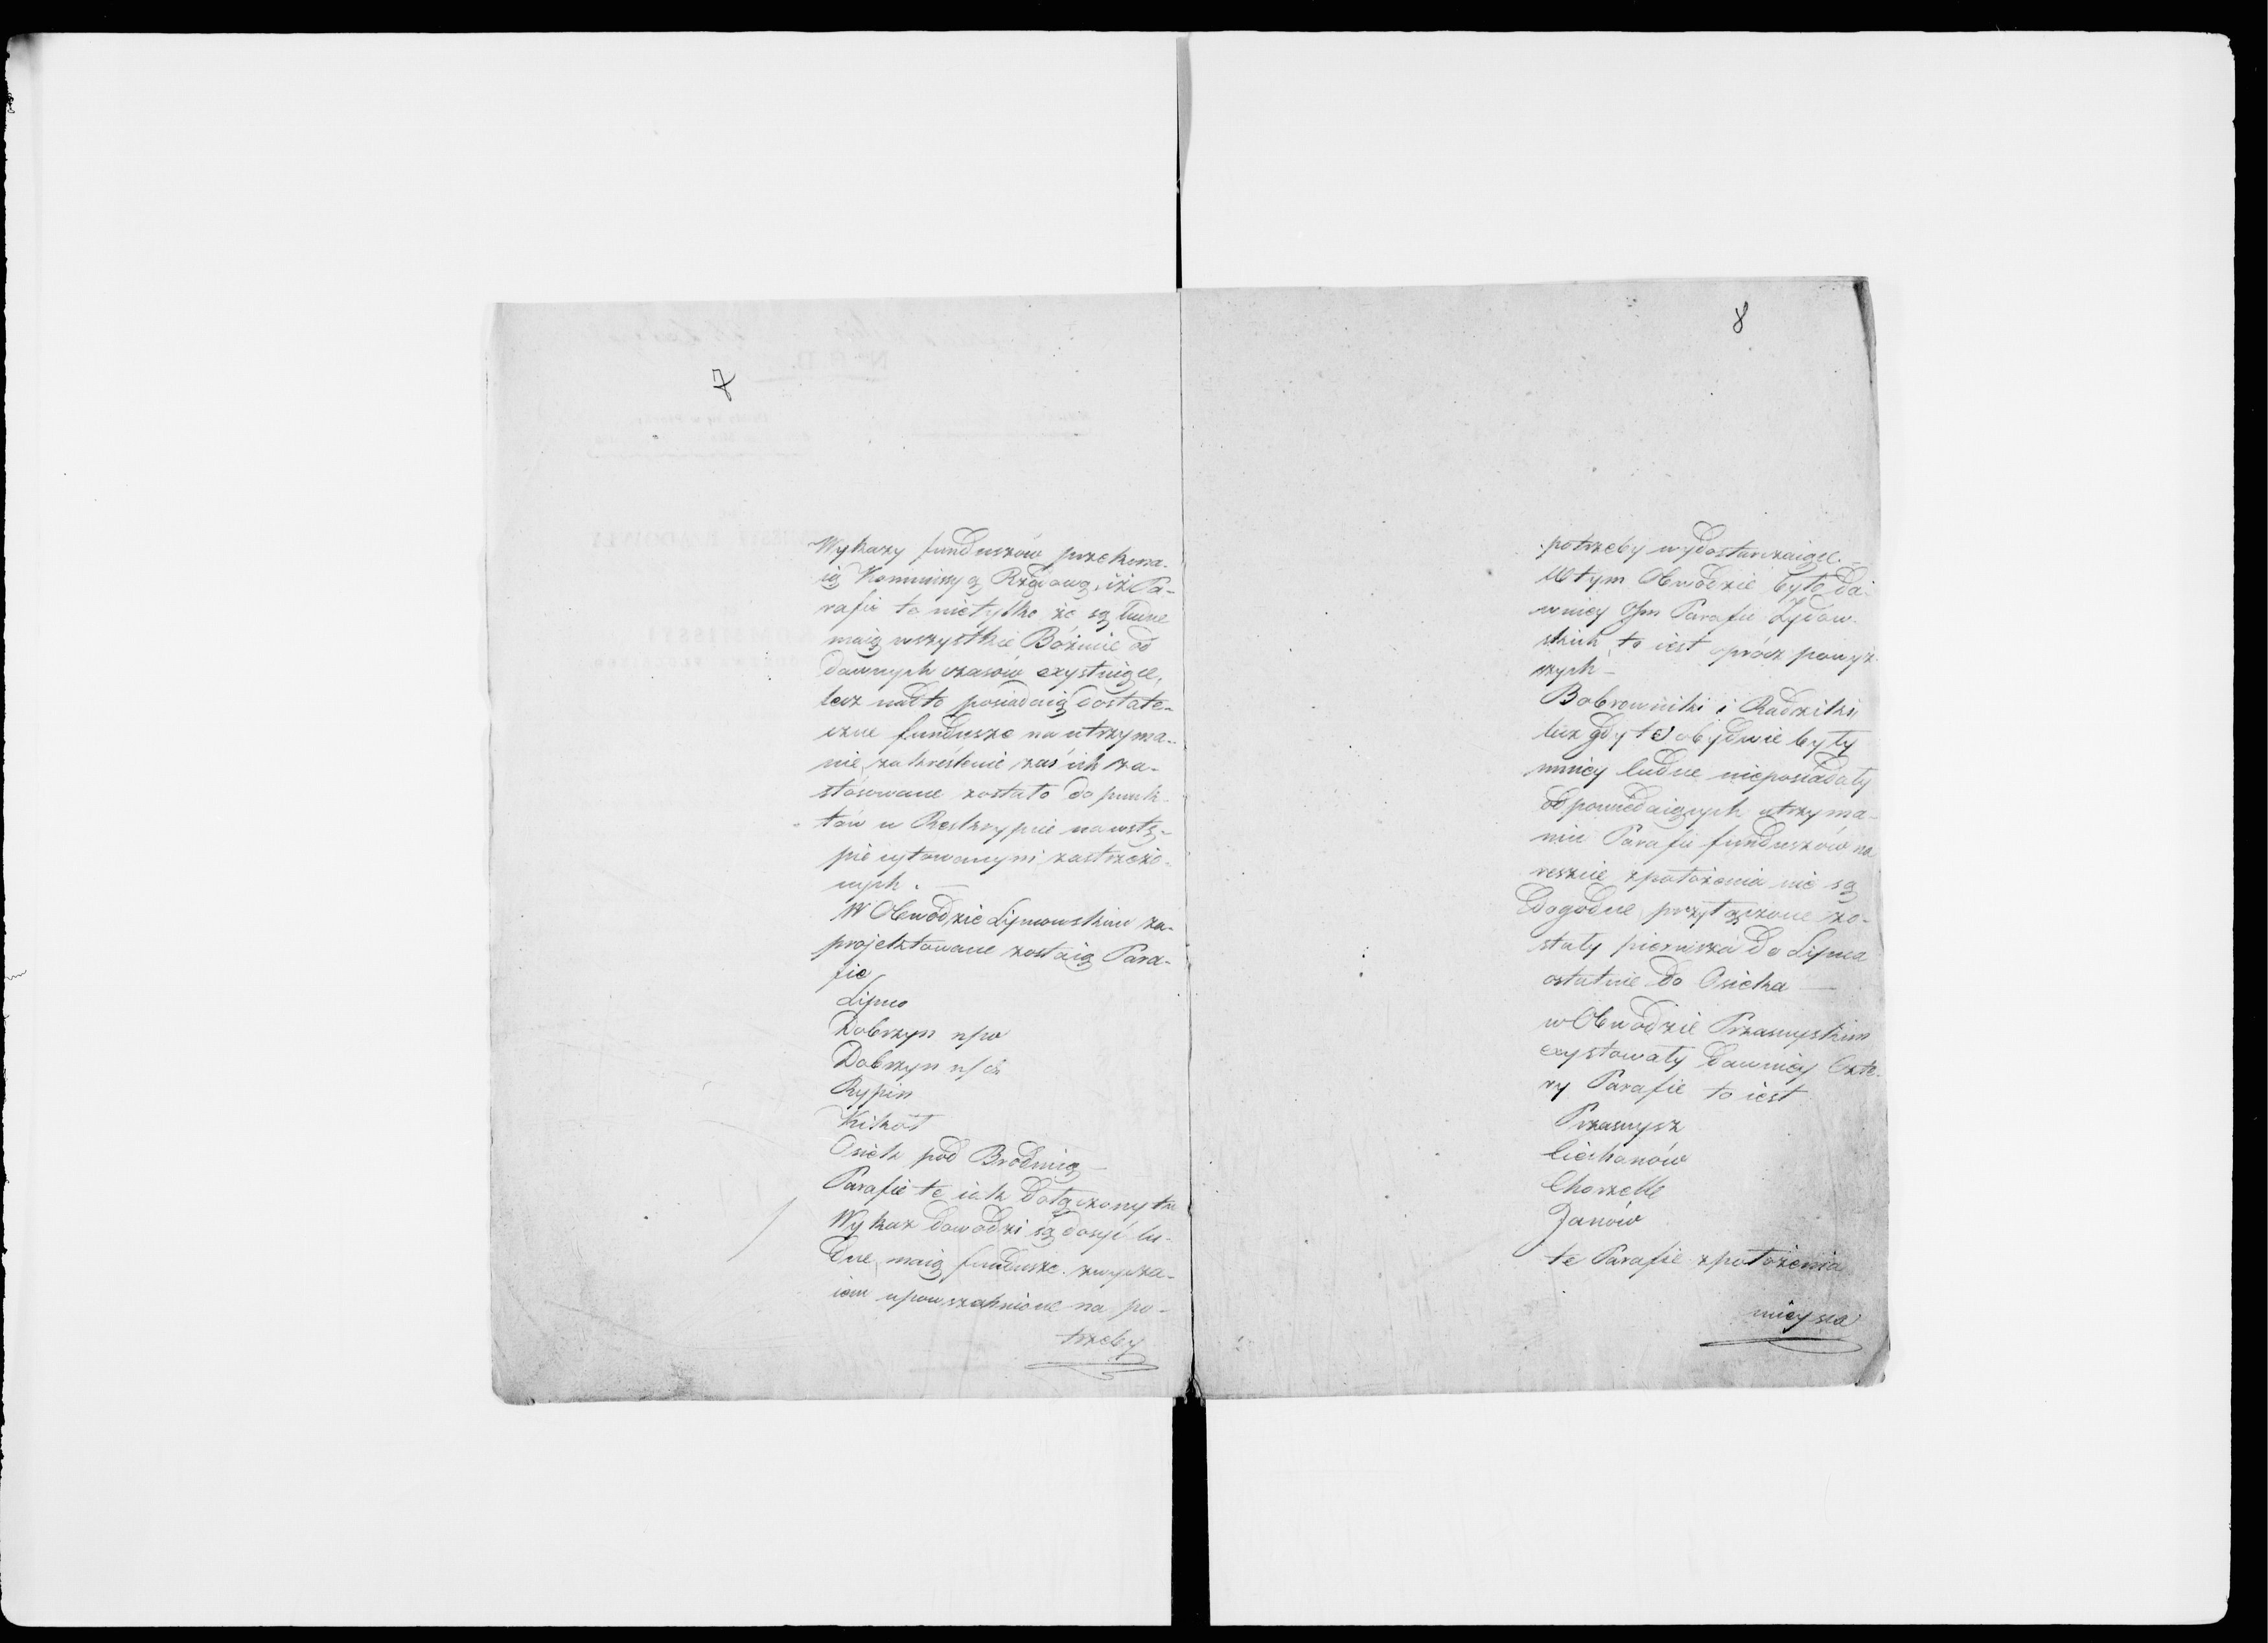 7
Wykazy funduszów przekona-
ią Kommissyą Rządową, iż Pa-
rafie te nietylko że są ludne
maią wszystkie Bóżnice od
dawnych czasów exystuiące,
lecz nadto posiadaią dostate-
czne fundusze na utrzyma-
nie, zakreślenie zaś ich za-
stósowane zostało do punk-
tów w Reskrypcie na wstę-
pie cytowanym zastrzeżo-
nych. —
W Obwodzie Lipnowskim za-
projektowane zostaią Para-
fie
Lipno
Dobrzyn n/w
Dobrzyn n/d
Rypin
Kikół
Osiek pod Brodnią —
Parafie te iak dołączony tu
Wykaz dowodzi są dosyć lu-
dne, maią fundusze zwycza-
iem upowszechnione na po-
trzeby
8
potrzeby wydostarczaiące. —
W tym Obwodzie było da-
wniey Ośm Parafii Żydow-
skich, to iest oprócz powyż-
szych —
Bobrowniki i Radziki,
lecz gdy te obydwie były
mniey ludne nieposiadały
odpowiedaiących utrzyma-
niu Parafii funduszów na
reszcie z położenia nie są
dogodne przyłączone zo-
stały pierwsza do Lipna
ostatnie do Osieka —
w Obwodzie Przasnyskim
exystowały dawniey Czte-
ry Parafie to iest
Przasnysz
Ciechanów
Chorzelle
Janów
te Parafie z położenia
mieysca